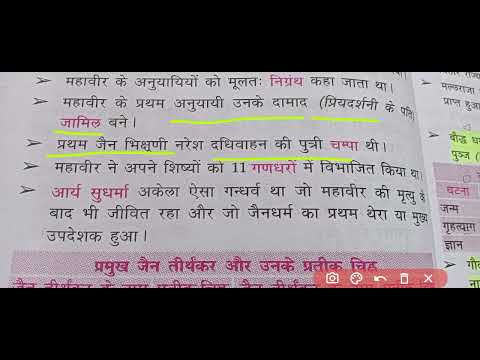 ➢ महावीर के अनुयायियों को मूलतः निग्रंथ कहा जाता था।
➢ महावीर के प्रथम अनुयायी उनके दामाद (प्रियदर्शनी के पति)
जामिल बने।
➢ प्रथम जैन भिक्षुणी नरेश दधिवाहन की पुत्री चम्पा थी।
➢ महावीर ने अपने शिष्यों को 11 गणधरों में विभाजित किया था।
➢ आर्य सुधर्मा अकेला ऐसा गन्धर्व था जो महावीर की मृत्यु के
बाद भी जीवित रहा और जो जैनधर्म का प्रथम थेरा या मुख्य
उपदेशक हुआ।
प्रमुख जैन तीर्थंकर और उनके प्रतीक चिह्न
मल्लराजा
प्राप्त हुआ
➢ बौद्ध
घटना
जन्म
गृहत्याग
ज्ञान